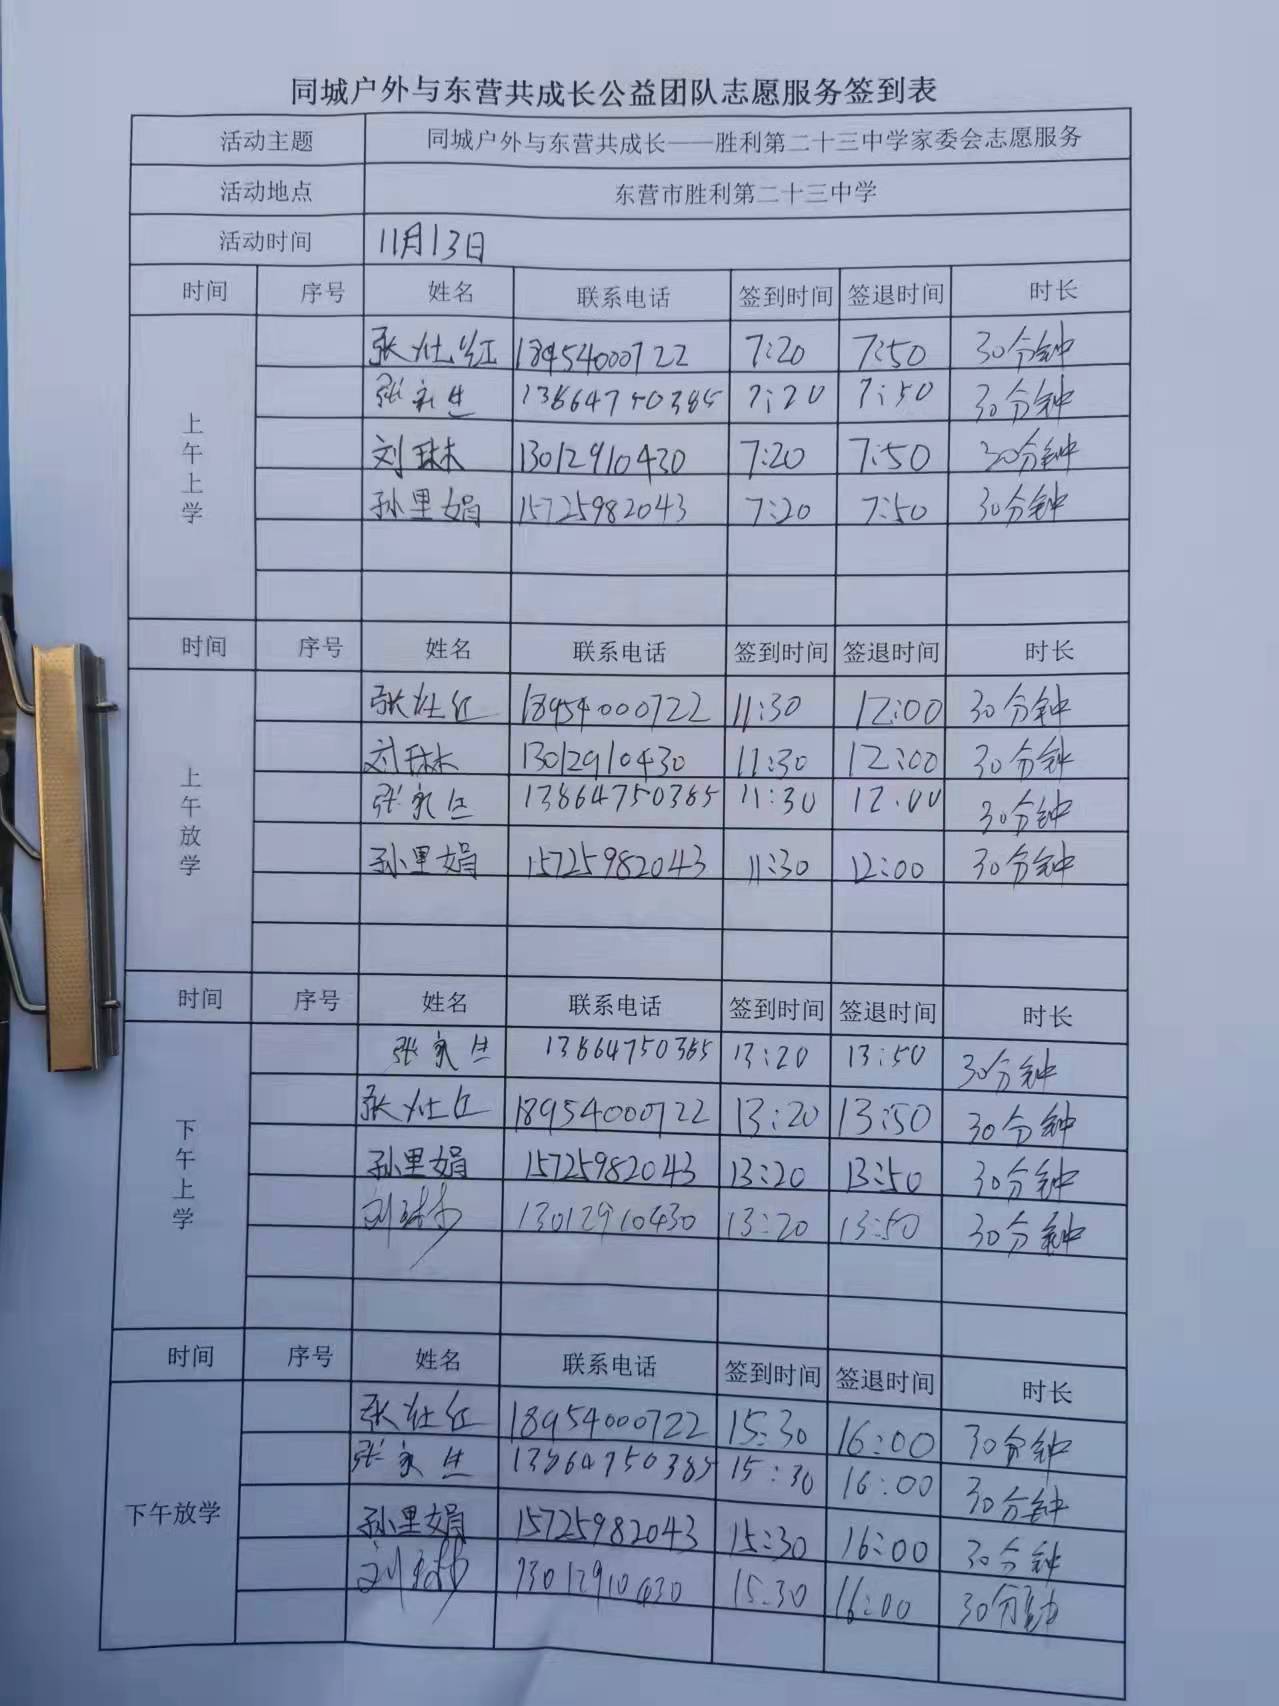 同城户外与东营共成长公益团队志愿服务签到表
活动主题 同城户外与东营共成长——胜利第二十三中学家委会志愿服务
活动地点 东营市胜利第二十三中学
活动时间 11月13日
时间 序号 姓名 联系电话 签到时间 签退时间 时长
上午上学
张灶红 18954000722 7:20 7:50 30分钟
张 13864750385 7:20 7:50 30分钟
刘琳 13012910430 7:20 7:50 30分钟
孙里娟 15725982043 7:20 7:50 30分钟
时间 序号 姓名 联系电话 签到时间 签退时间 时长
上午放学
张灶红 18954000722 11:30 12:00 30分钟
刘琳 13012910430 11:30 12:00 30分钟
张 13864750385 11:30 12:00 30分钟
孙里娟 15725982043 11:30 12:00 30分钟
时间 序号 姓名 联系电话 签到时间 签退时间 时长
下午上学
张 13864750385 13:20 13:50 30分钟
张灶红 18954000722 13:20 13:50 30分钟
孙里娟 15725982043 13:20 13:50 30分钟
刘琳 13012910430 13:20 13:50 30分钟
时间 序号 姓名 联系电话 签到时间 签退时间 时长
下午放学
张灶红 18954000722 15:30 16:00 30分钟
张 13864750385 15:30 16:00 30分钟
孙里娟 15725982043 15:30 16:00 30分钟
刘琳 13012910430 15:30 16:00 30分钟